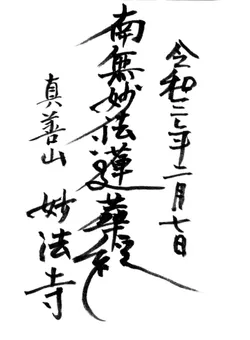 令和三年二月七日
南無妙法蓮華経
真善山
妙法寺